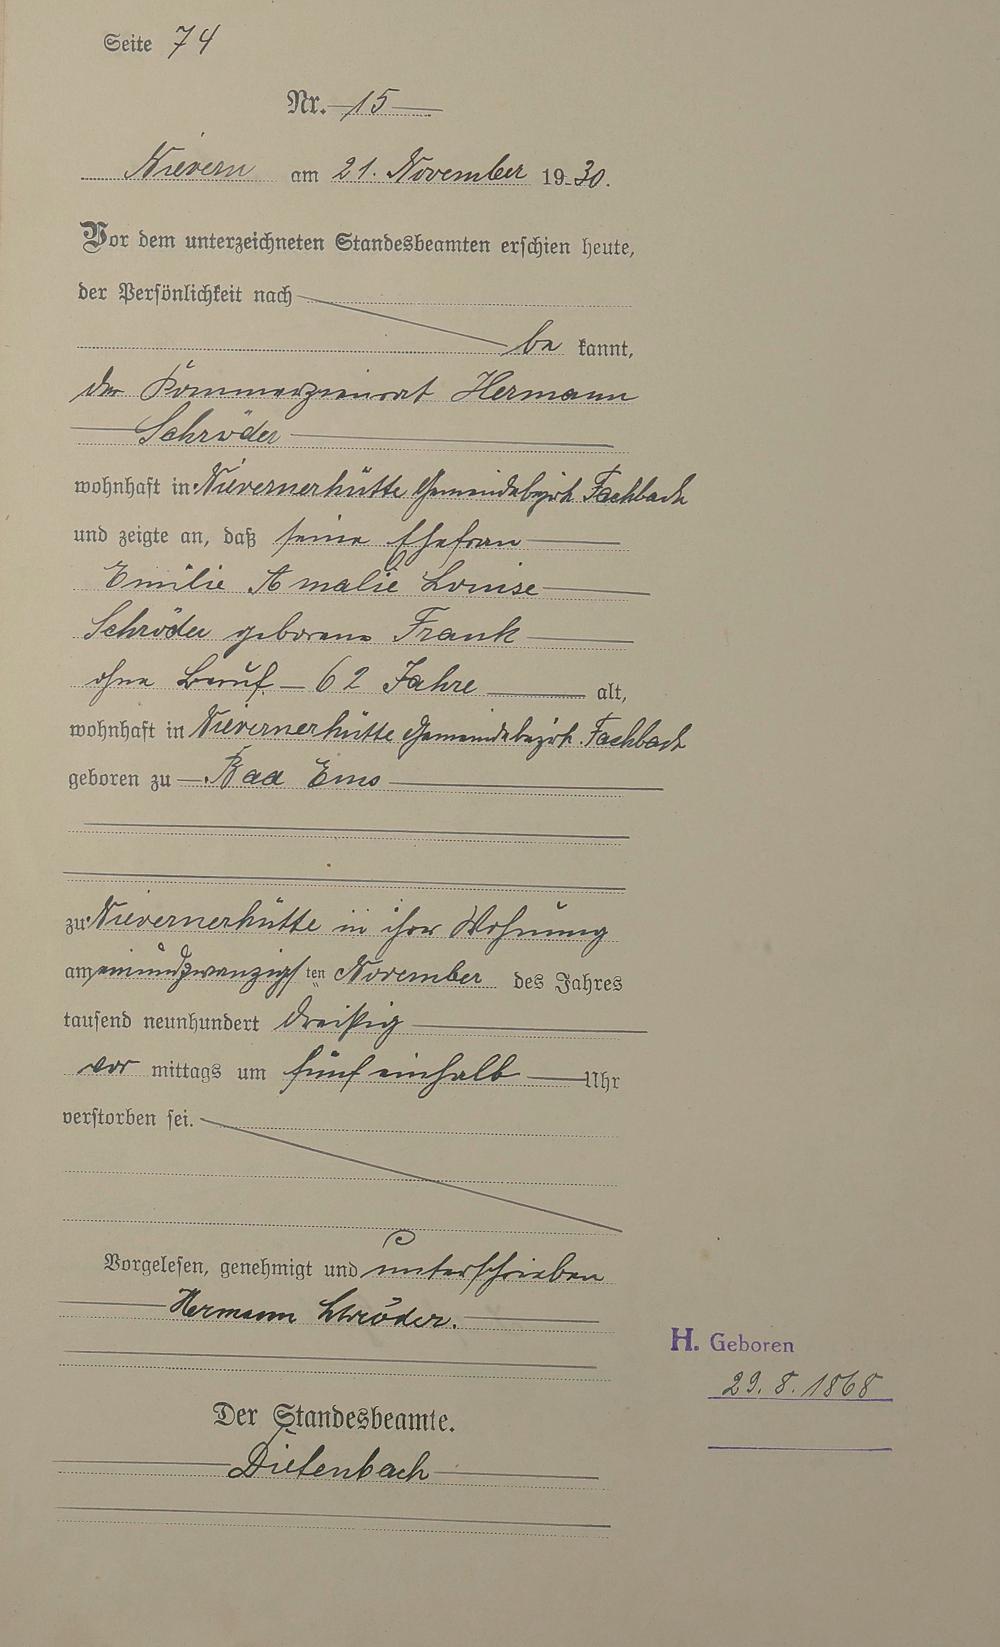 Seite 74
Nr. 15
Nievern am 21. November 1930.
Vor dem unterzeichneten Standesbeamten erschien heute,
der Persönlichkeit nach
be kannt,
der Kommerzienrat Hermann
Schröder
wohnhaft in Nievernerhütte Gemeindebezirk Fachbach
und zeigte an, daß seine Ehefrau
Emilie Amalie Louise
Schröder geborene Frank
ohne Beruf – 62 Jahre alt,
wohnhaft in Nievernerhütte Gemeindebezirk Fachbach
geboren zu Bad Ems
zu Nievernerhütte in ihrer Wohnung
am einundzwanzigsten November des Jahres
tausend neunhundert dreißig
vor mittags um fünf einhalb Uhr
verstorben sei.
Vorgelesen, genehmigt und unterschrieben
Hermann Schröder.
H. Geboren
29. 8. 1868
Der Standesbeamte.
Dietenbach